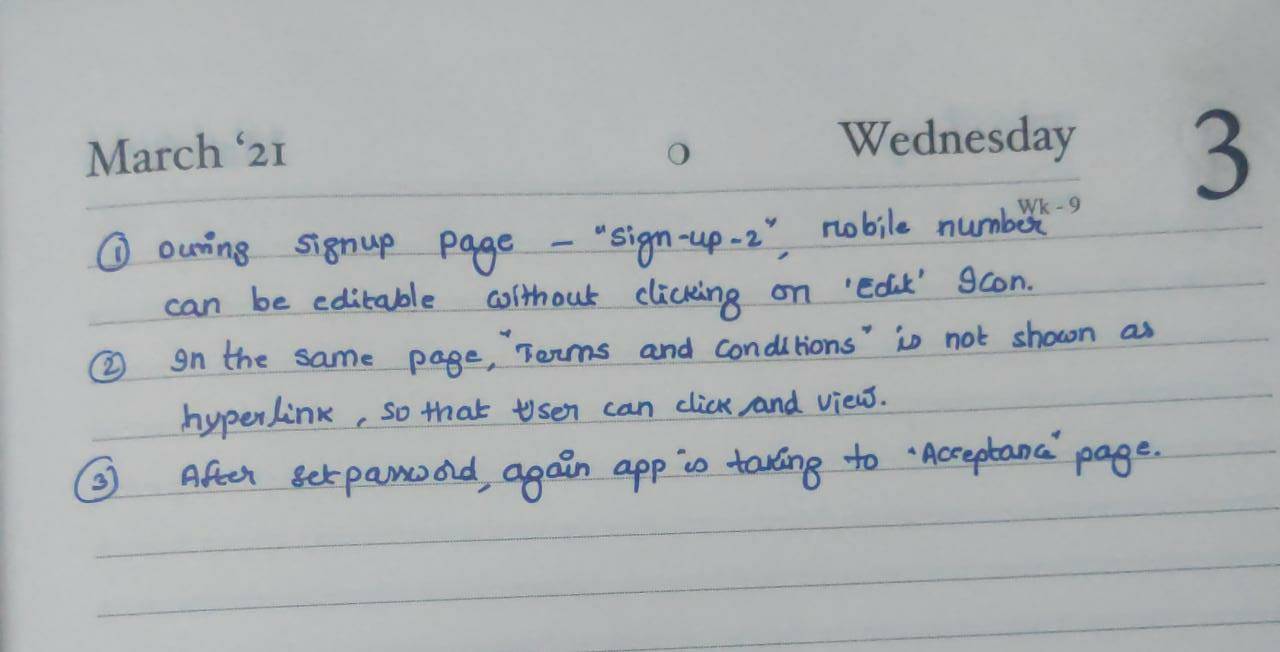 March ‘21 Wednesday 3
Wk - 9
① During signup page - "sign-up-2", mobile number
can be editable without clicking on 'Edit' Icon.
② In the same page, "Terms and conditions" is not shown as
hyperlink, so that user can click and view.
③ After set password, again app is taking to "Acceptance" page.